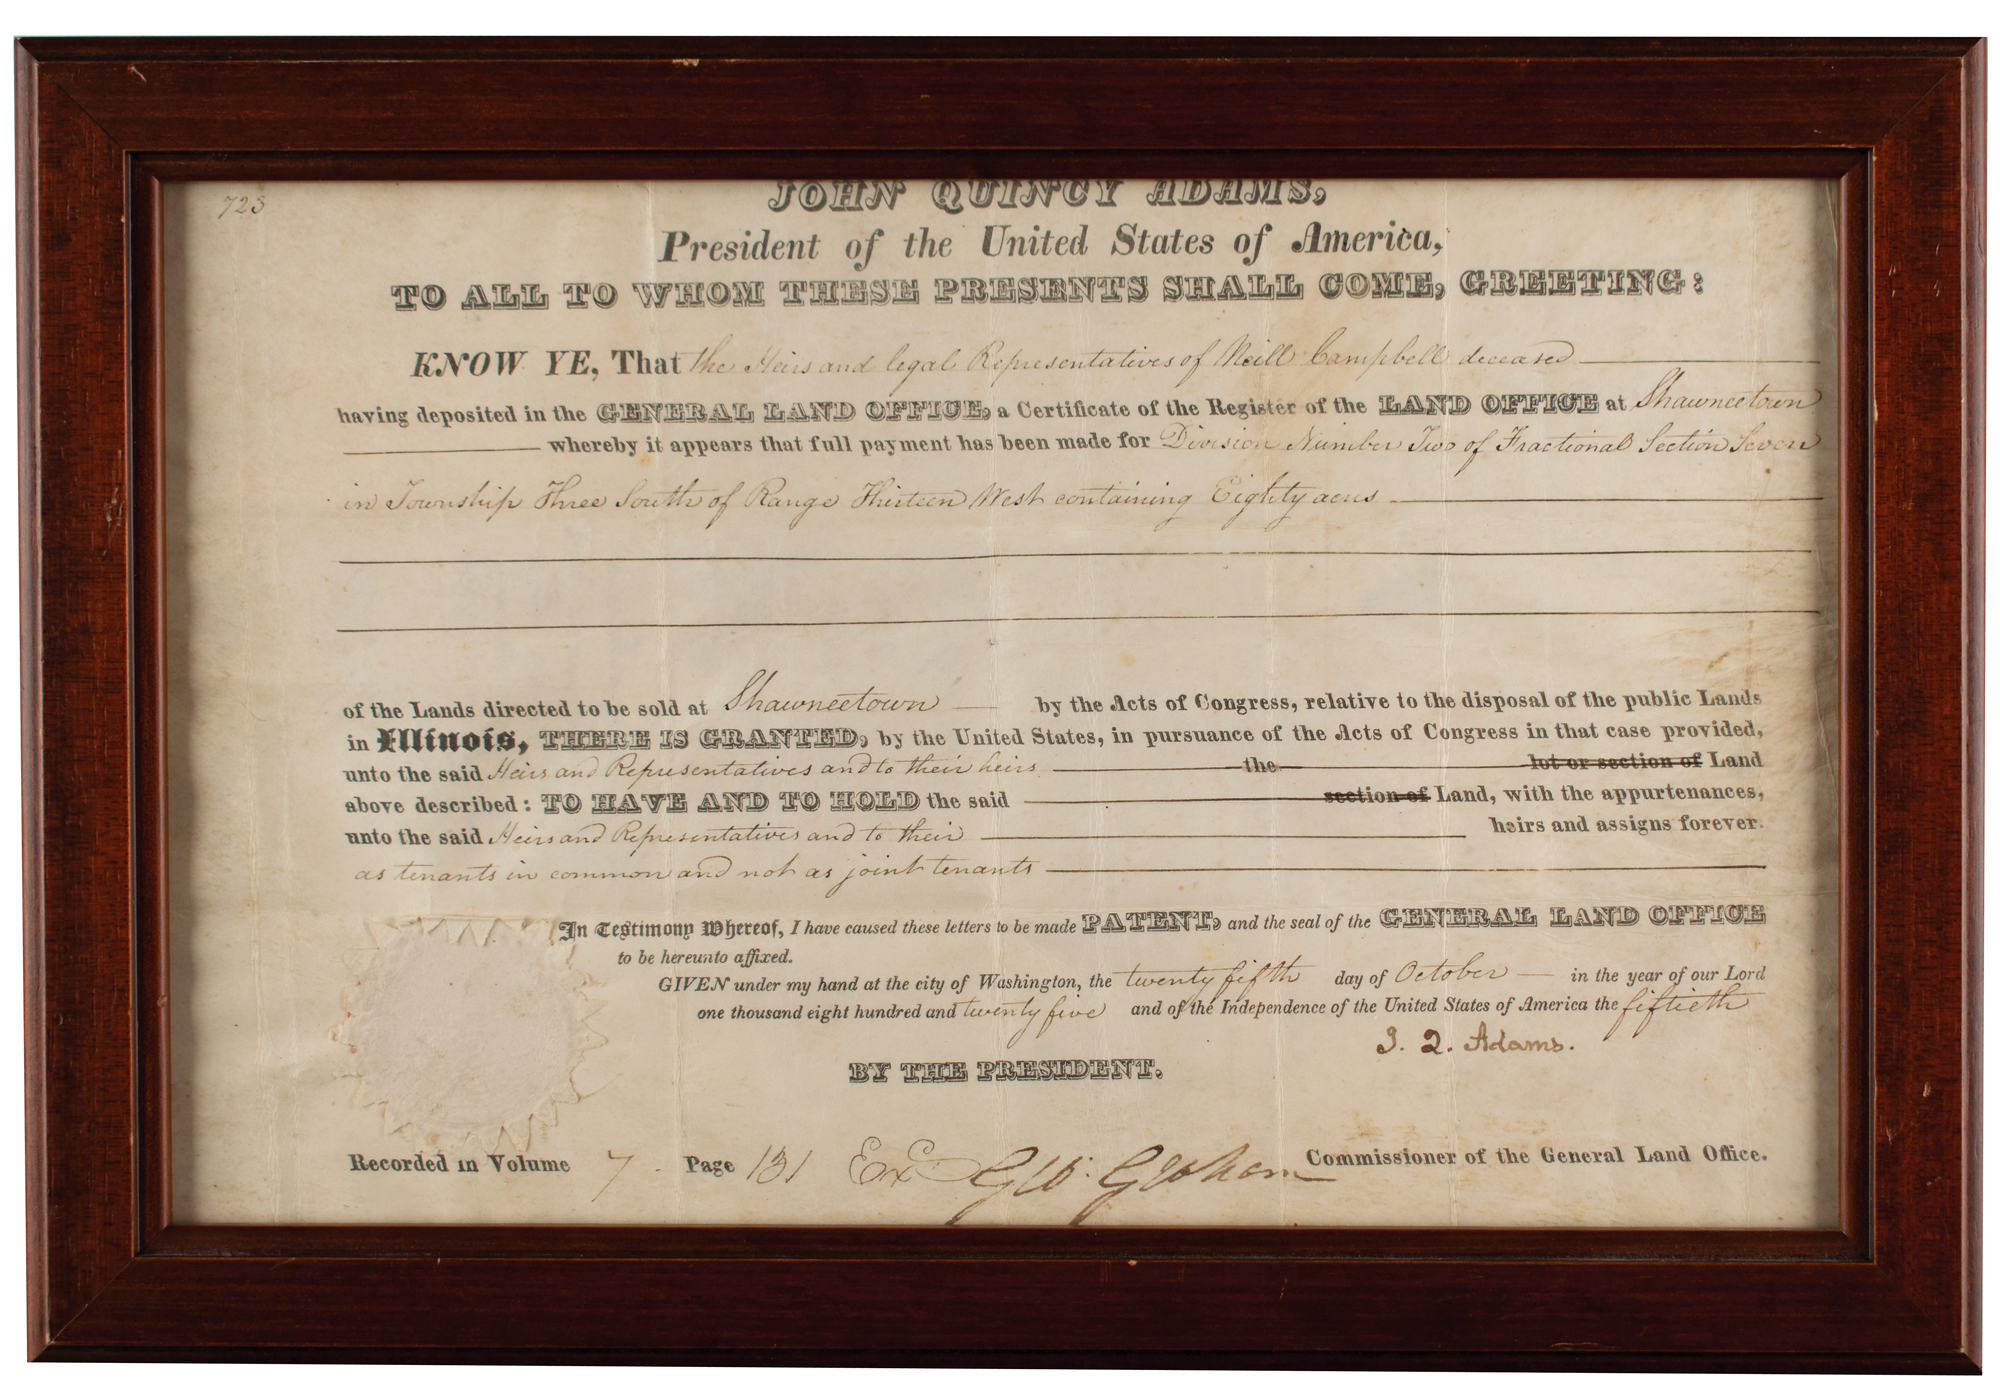 723
JOHN QUINCY ADAMS,
President of the United States of America,
TO ALL TO WHOM THESE PRESENTS SHALL COME, GREETING:
KNOW YE, That the Heirs and legal Representatives of Neill Campbell deceased
having deposited in the GENERAL LAND OFFICE, a Certificate of the Register of the LAND OFFICE at Shawneetown
whereby it appears that full payment has been made for Division Number Two of Fractional Section Seven
in Township Three South of Range Thirteen West containing Eighty acres
of the Lands directed to be sold at Shawneetown by the Acts of Congress, relative to the disposal of the public Lands
in Illinois, THERE IS GRANTED, by the United States, in pursuance of the Acts of Congress in that case provided,
unto the said Heirs and Representatives and to their heirs the lot or section of Land
above described: TO HAVE AND TO HOLD the said section of Land, with the appurtenances,
unto the said Heirs and Representatives and to their heirs and assigns forever.
as tenants in common and not as joint tenants
In Testimony Whereof, I have caused these letters to be made PATENT, and the seal of the GENERAL LAND OFFICE
to be hereunto affixed.
GIVEN under my hand at the city of Washington, the twenty fifth day of October in the year of our Lord
one thousand eight hundred and twenty five and of the Independence of the United States of America the fiftieth
J. Q. Adams.
BY THE PRESIDENT.
Recorded in Volume 7. Page 131 Exd G W: Graham Commissioner of the General Land Office.